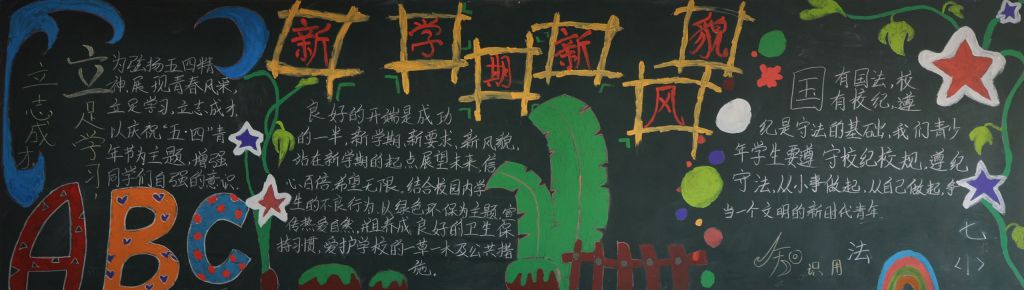 新学期新风貌
立足学习,
立志成才
为弘扬五四精
神,展现青春风采,
立足学习,立志成才
以庆祝“五·四”青
年节为主题,增强
同学们自强的意识.
ABC
良好的开端是成功
的一半,新学期,新要求、新风貌,
站在新学期的起点展望未来,信
心百倍希望无限、结合校园内学
生的不良行为,以绿色环保为主题,宣
传热爱自然,并且养成良好的卫生保
持习惯,爱护学校的一草一木及公共措
施。
国有国法,校
有校纪,遵
纪是守法的基础,我们青少
年学生要遵守校纪校规,遵纪
守法,从小事做起,从自己做起,争
当一个文明的新时代青年
知识用法
七
(1)